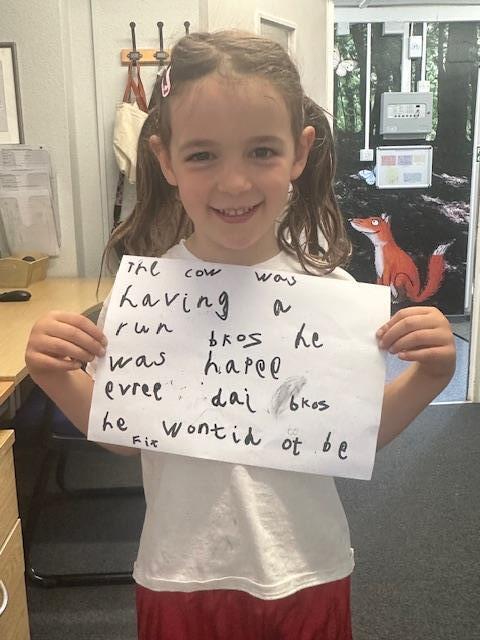 The cow was
having a
run bkos he
was hapee
evree dai bkos
he wontid ot be
Fit